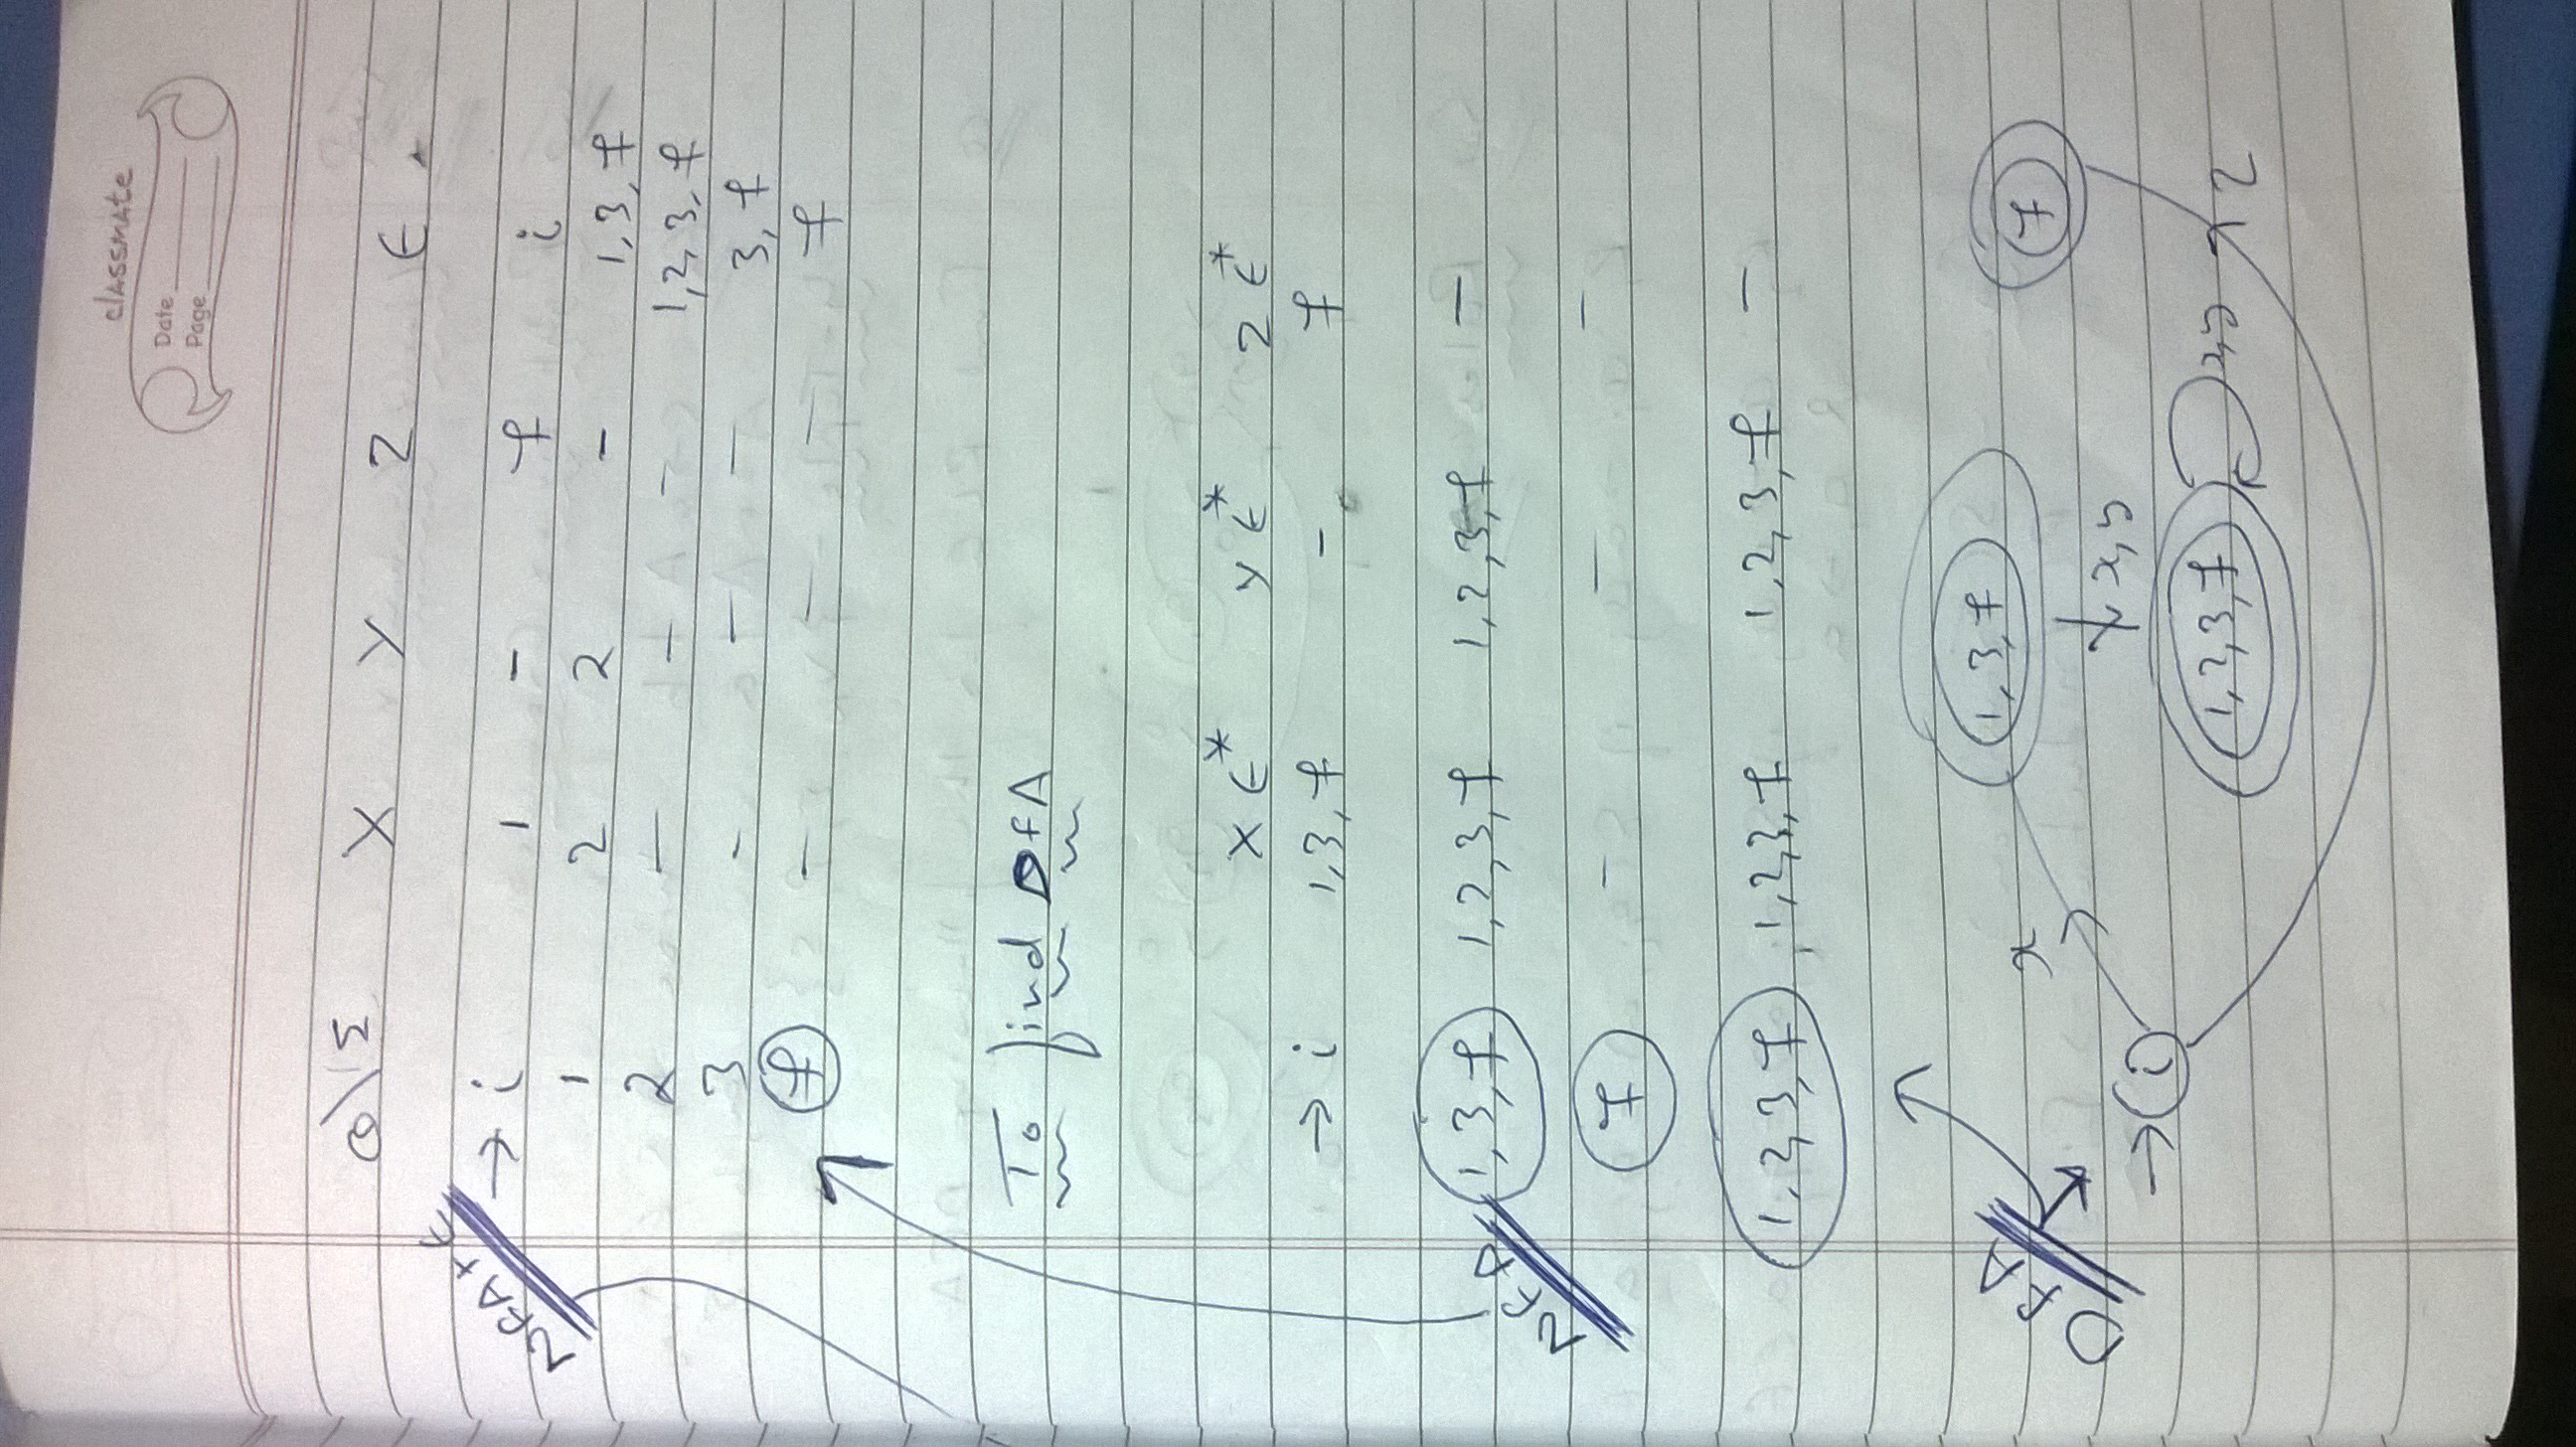 classmate
Date
Page
Q\Σ X Y Z ϵ
NFA+ϵ
→ i 1 - f i
1 2 2 - 1,3,f
2 - - - 1,2,3,f
3 - - - 3,f
f - - - f
To find DFA
xϵ* yϵ* zϵ*
→ i 1,3,f - f
NFA
1,3,f 1,2,3,f 1,2,3,f -
f - - -
1,2,3,f 1,2,3,f 1,2,3,f -
DFA
1,3,f
f
x
x,y
→ i
1,2,3,f x,y z